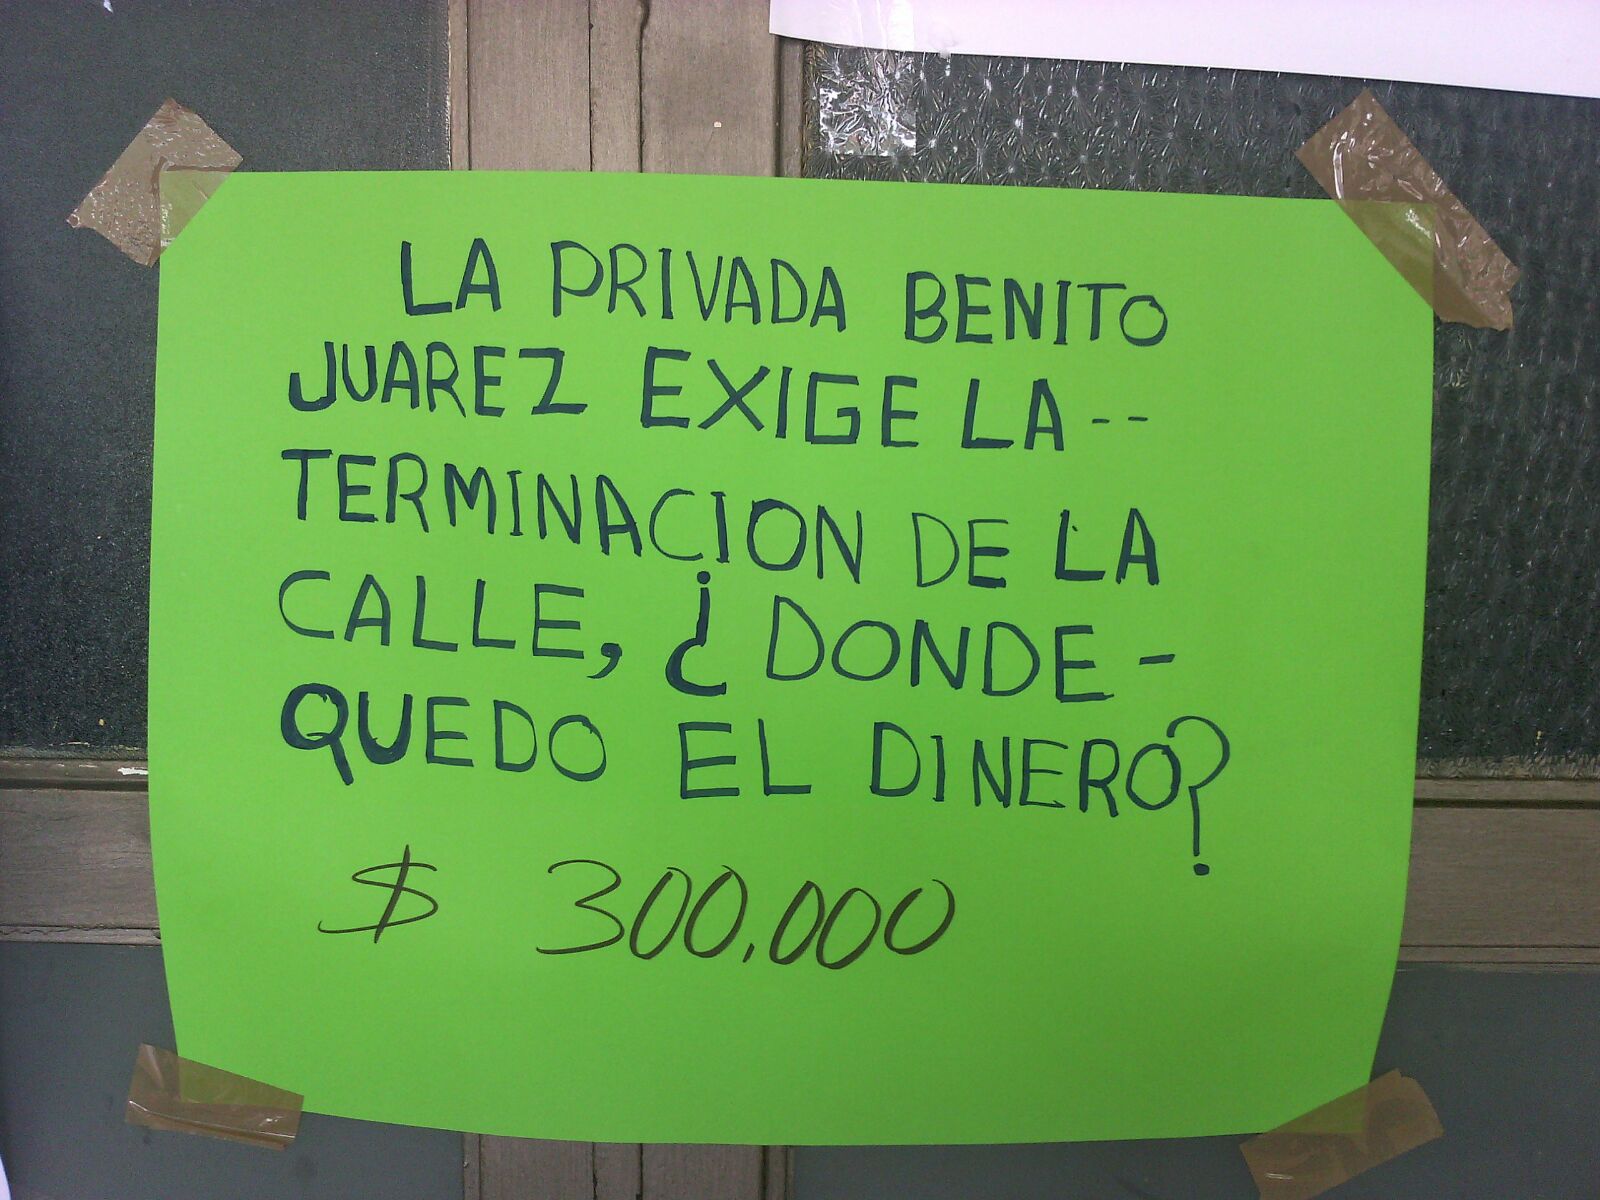 LA PRIVADA BENITO
JUAREZ EXIGE LA --
TERMINACION DE LA
CALLE, ¿DONDE -
QUEDO EL DINERO?
$ 300,000